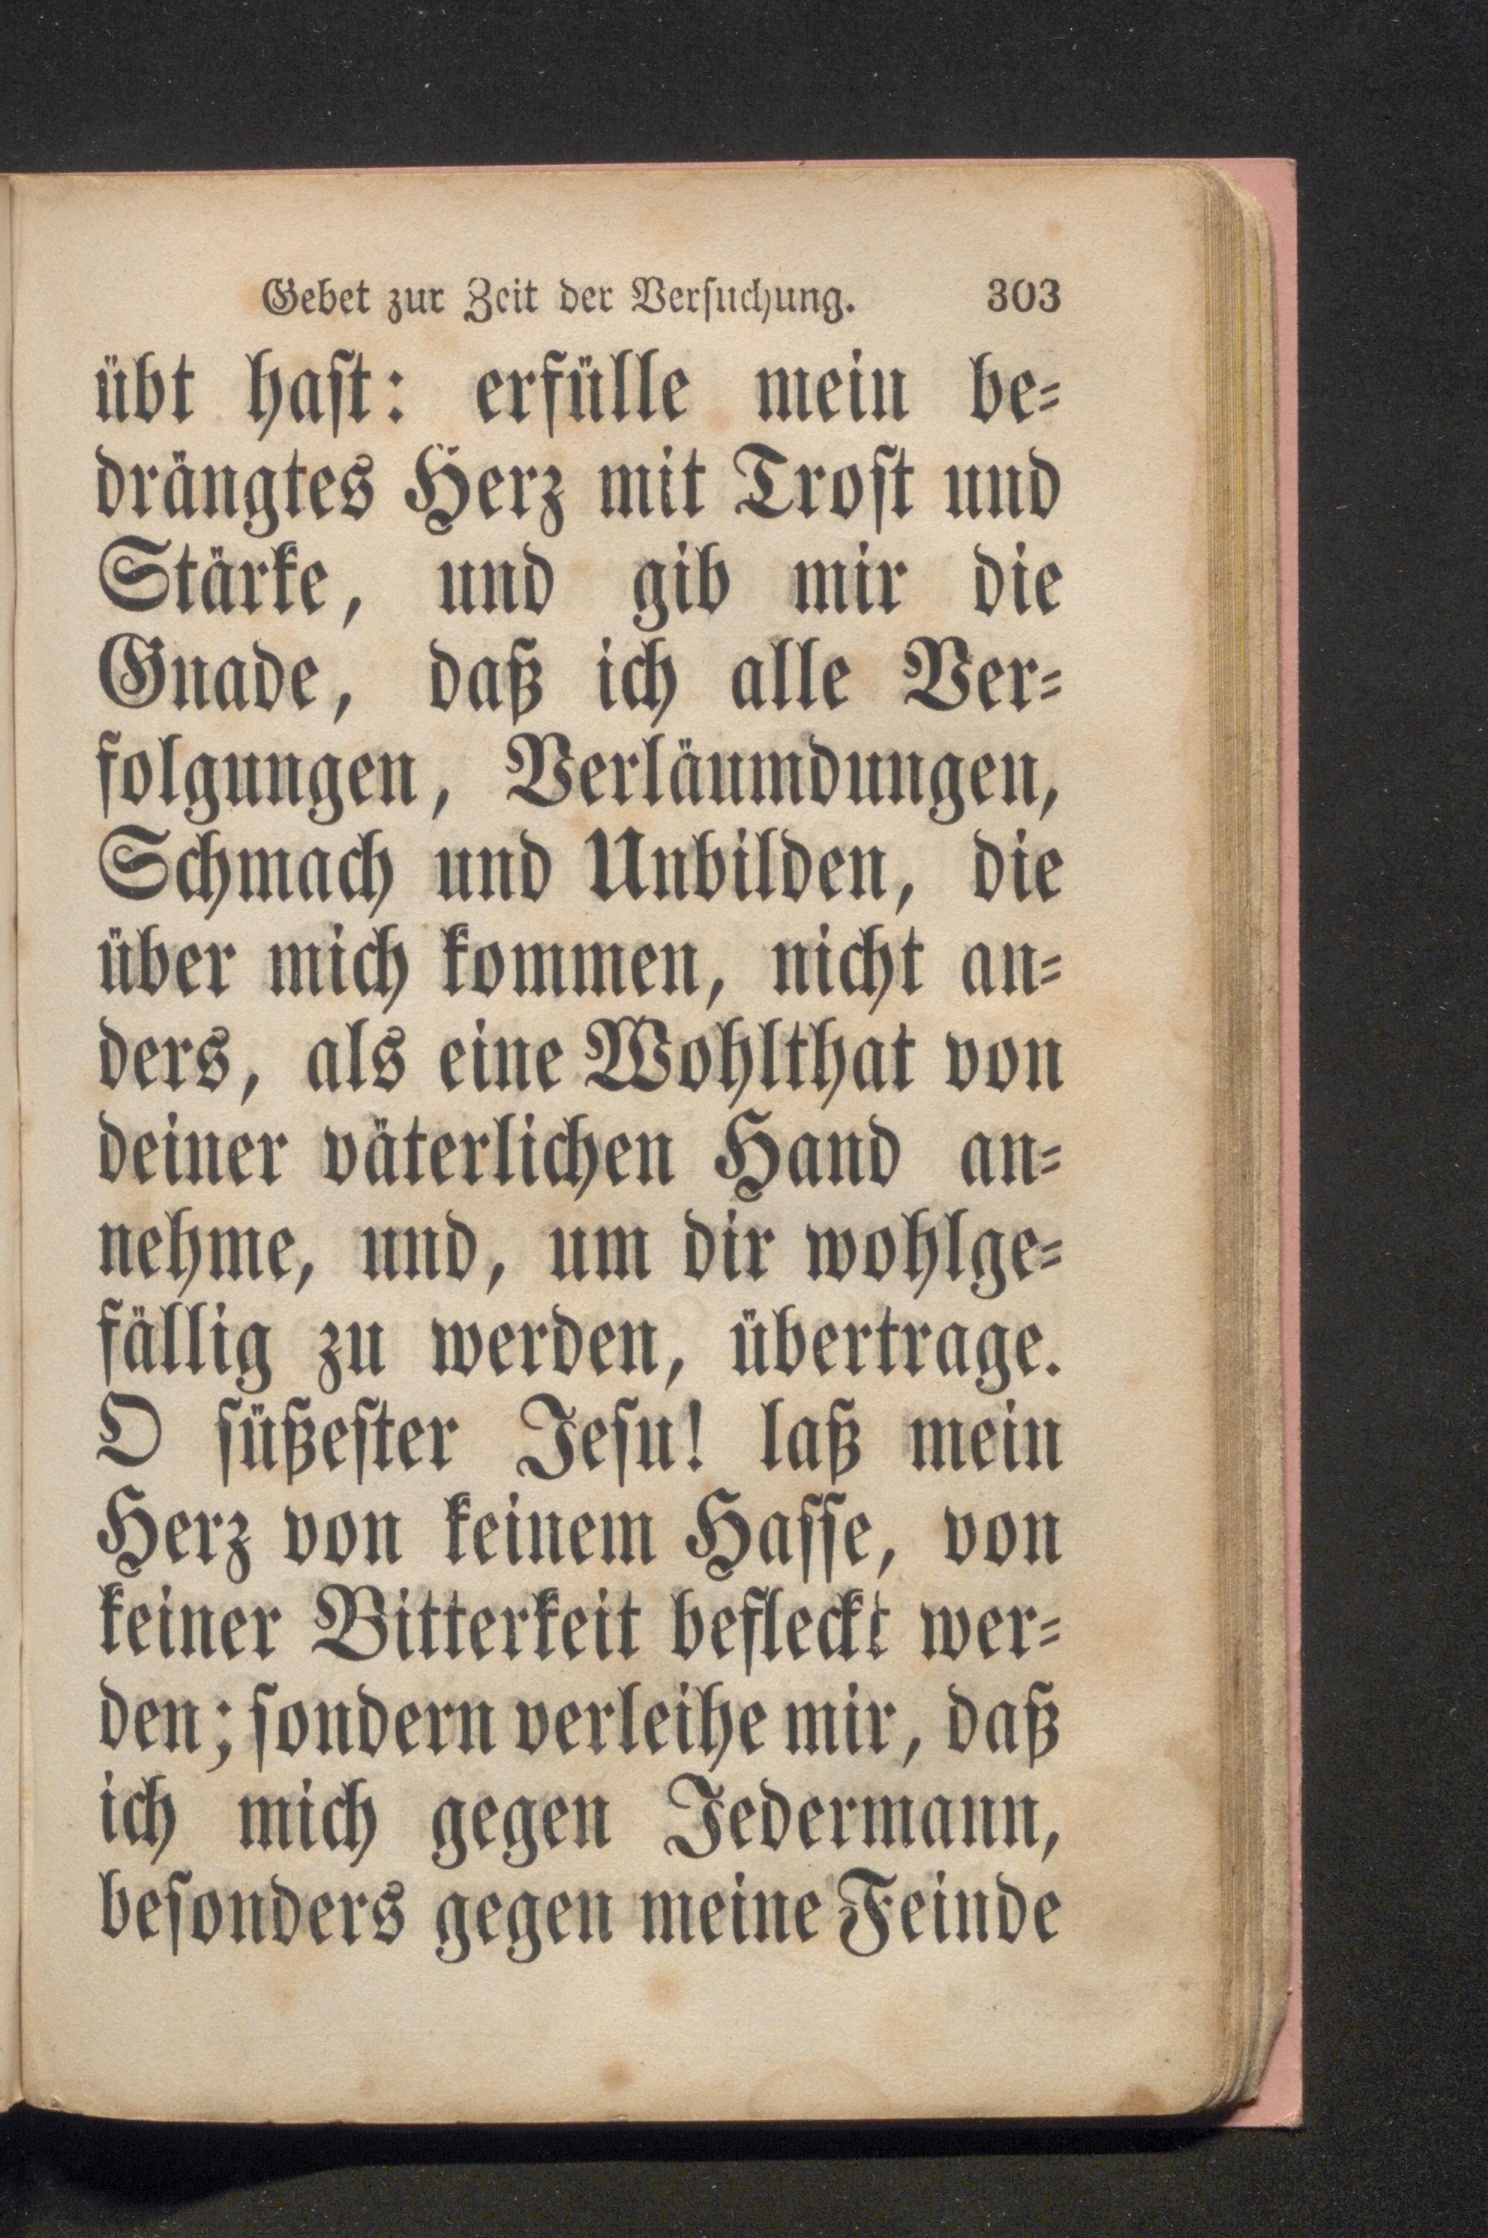 Gebet zur Zeit der Verſuchung. 303
übt haſt: erfülle mein be⸗
drängtes Herz mit Troſt und
Stärke, und gib mir die
Gnade, daß ich alle Ver⸗
folgungen, Verläumdungen,
Schmach und Unbilden, die
über mich kommen, nicht an⸗
ders, als eine Wohlthat von
deiner väterlichen Hand an⸗
nehme, und, um dir wohlge⸗
fällig zu werden, übertrage.
O ſüßeſter Jeſu! laß mein
Herz von keinem Haſſe, von
keiner Bitterkeit befleckt wer⸗
den; ſondern verleihe mir, daß
ich mich gegen Jedermann,
beſonders gegen meine Feinde